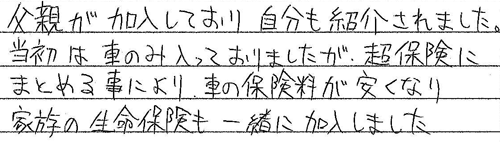 父親が加入しており 自分も紹介されました。
当初は車のみ入っておりましたが、超保険に
まとめる事により、車の保険料が安くなり
家族の生命保険も一緒に加入しました